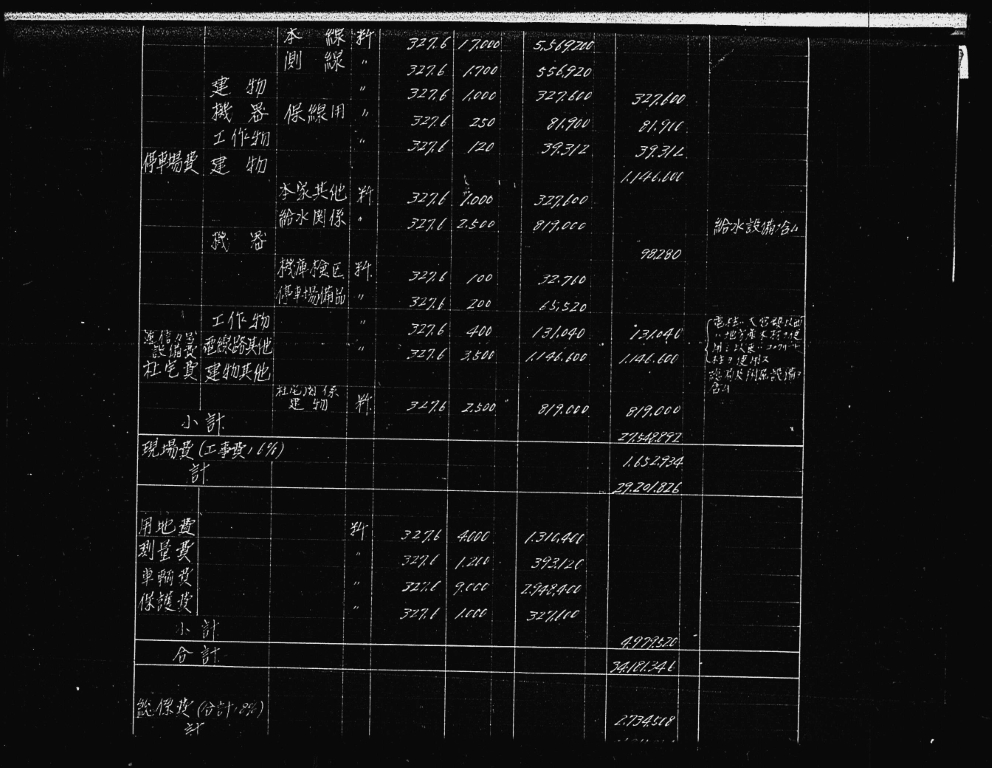 本線 粁 327.6 17.000 5.569.200
側線 〃 327.6 1.700 556.920
建物 〃 327.6 1.000 327.600 327.600
機器 保線用 〃 327.6 250 81.900 81.900
工作物 〃 327.6 120 39.312 39.312
停車場費 建物 1.146.600
本家其他 粁 327.6 1.000 327.600
給水関係 〃 327.6 2.500 819.000 給水設備含ム
機器 98.280
機庫検区 粁 327.6 100 32.760
停車場備品 〃 327.6 200 65.520
工作物 〃 327.6 400 131.040 131.040
設備費 電線路其他 〃 327.6 3.500 1.146.600 1.146.600
社宅費 建物其他
社宅関係
建物 粁 327.6 2.500 819.000 819.000
小計 27.548.892
現場費(工事費,6%) 1.652.934
計 29.201.826
用地費 粁 327.6 4.000 1.310.400
測量費 〃 327.6 1.200 393.120
車輌費 〃 327.6 9.000 2.948.400
保護費 〃 327.6 1.000 327.600
小計 4.979.520
合計 34.181.346
総係費(合計,8%) 2.734.508
計